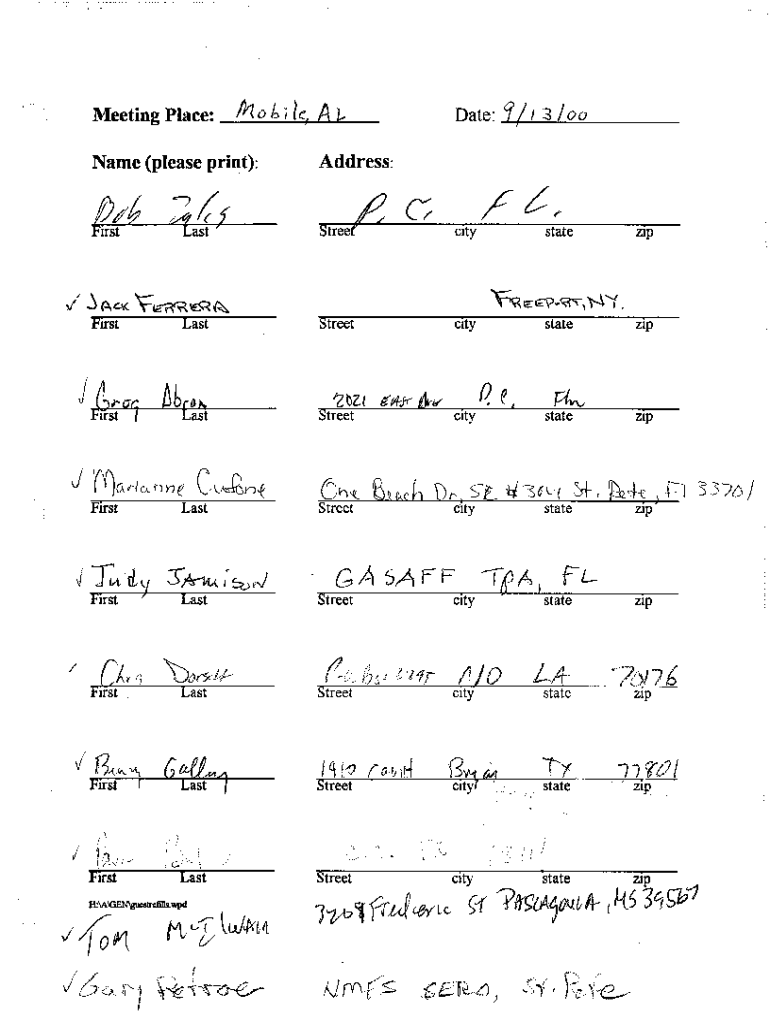 Meeting Place: Mobile, AL Date: 9/13/00
Name (please print): Address:
Bob Zales P. C. FL.
First Last Street city state zip
✓ JACK FERRERA FREEPORT, NY.
First Last Street city state zip
✓ Greg Abrams 2021 EAST P.C. Fla
First Last Street city state zip
✓ Marianne Cufone One Beach Dr. SE #304 St. Pete, Fl 33701
First Last Street city state zip
✓ Judy JAmison GASAFF TPA, FL
First Last Street city state zip
✓ Chris Dorsett N/O LA 70176
First Last Street city state zip
✓ Benny Gallaway 1410 Bryan TX 77801
First Last Street city state zip
✓
First Last Street city state zip
H:\A\GEN\guestrefills.wpd
✓ TOM McILWAIN 3209 Frederic ST PASCAGOULA, MS 39567
✓ Gary Petrae NMFS SERO, St. Pete